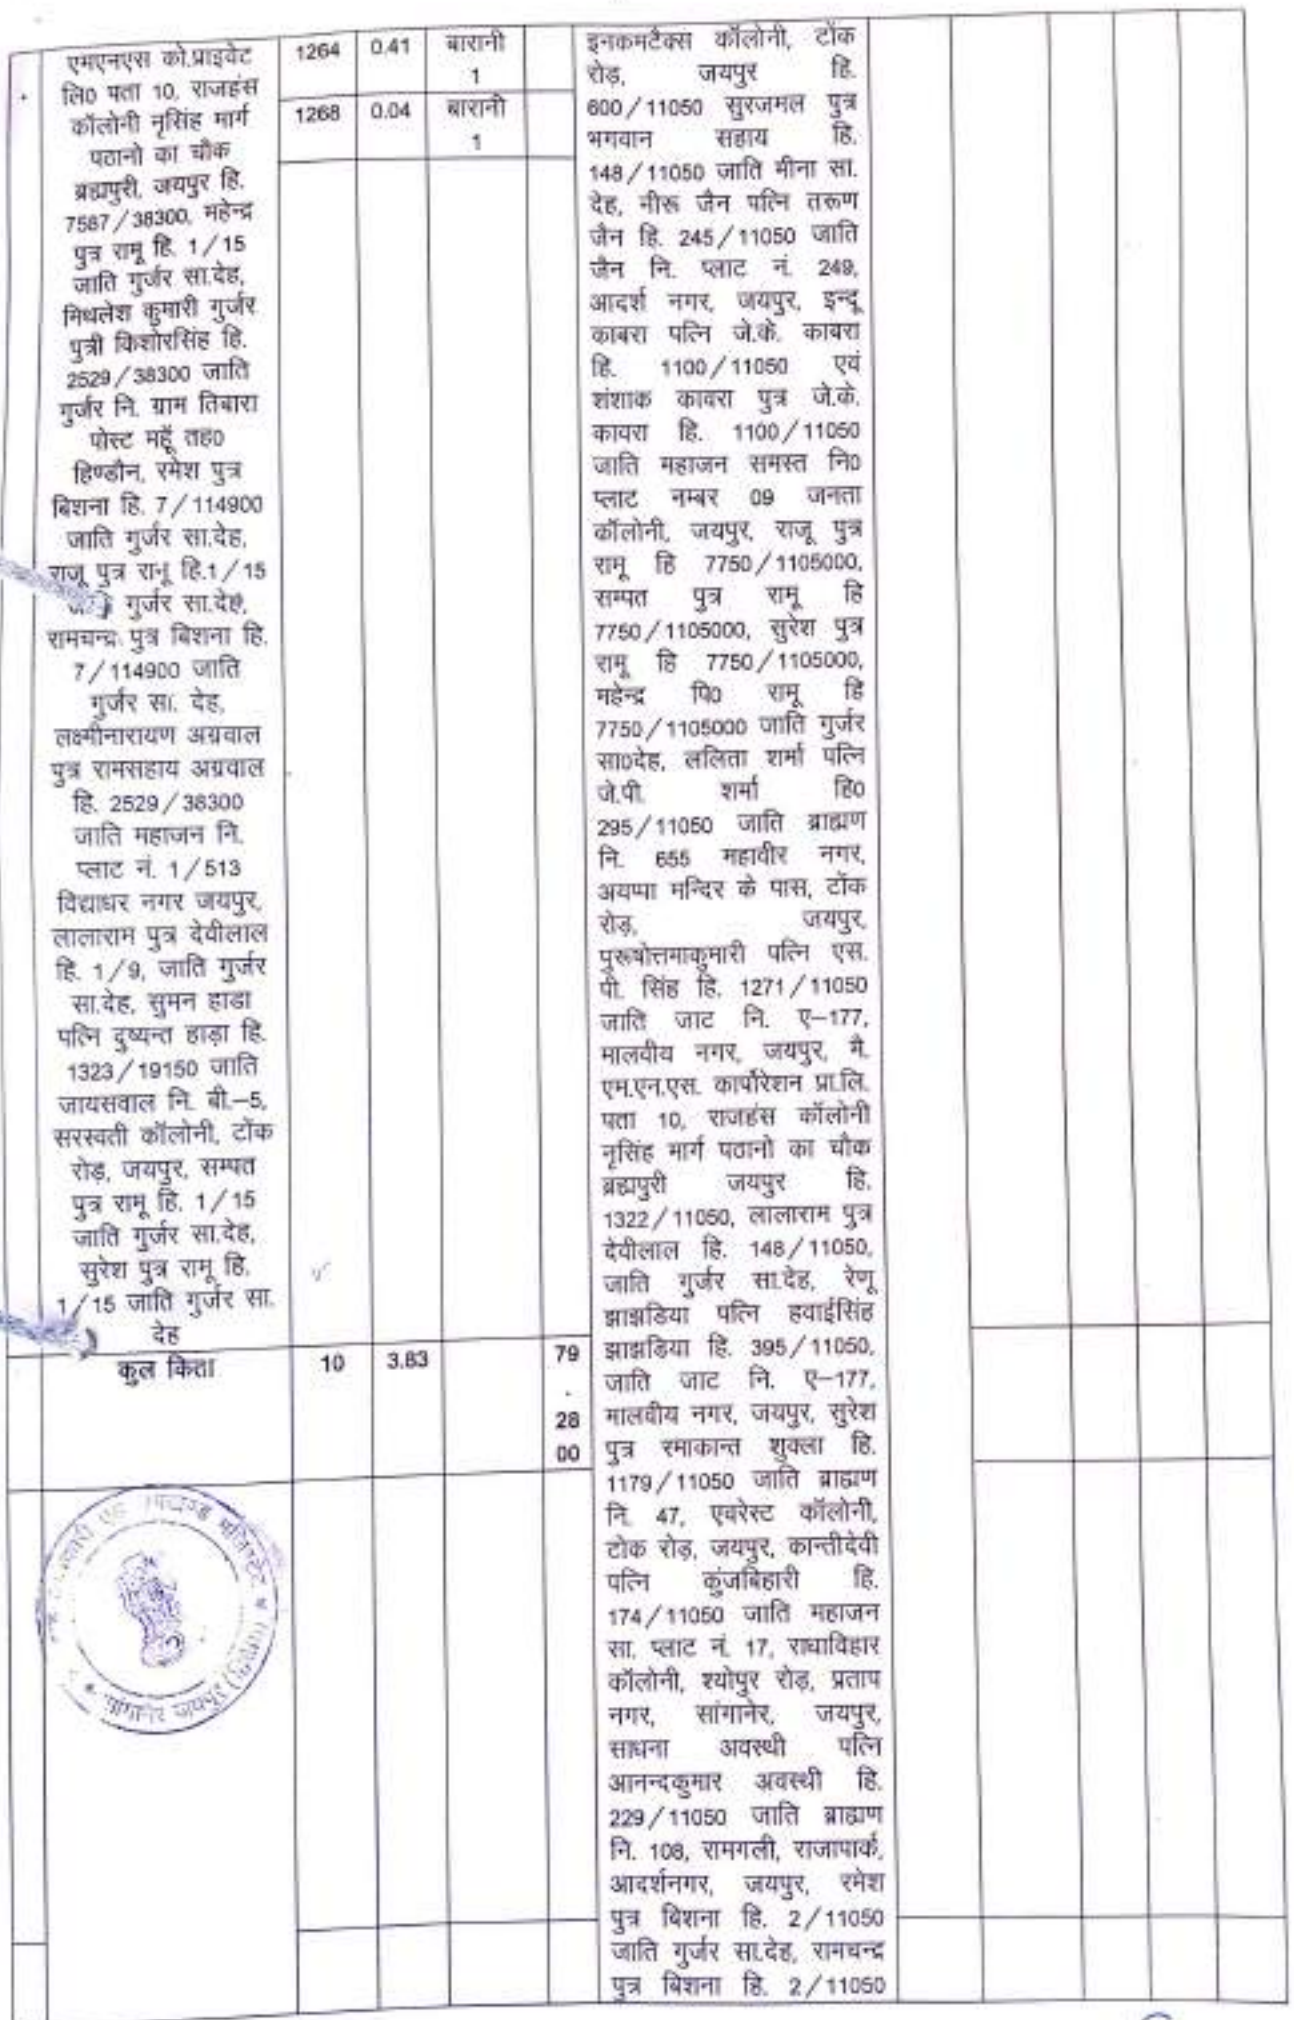 एमएनएस को.प्राइवेट
लि0 पता 10, राजहंस
कॉलोनी नृसिंह मार्ग
पठानो का चौक
ब्रह्मपुरी, जयपुर हि.
7587/38300, महेन्द्र
पुत्र रामू हि. 1/15
जाति गुर्जर सा.देह,
मिथलेश कुमारी गुर्जर
पुत्री किशोरसिंह हि.
2529/38300 जाति
गुर्जर नि. ग्राम तिबारा
पोस्ट महूँ तह0
हिण्डौन, रमेश पुत्र
बिशना हि. 7/114900
जाति गुर्जर सा.देह,
राजू पुत्र रानू हि.1/15
गुर्जर सा.देह,
रामचन्द्र पुत्र बिशना हि.
7/114900 जाति
गुर्जर सा. देह,
लक्ष्मीनारायण अग्रवाल
पुत्र रामसहाय अग्रवाल
हि. 2529/38300
जाति महाजन नि.
प्लाट नं. 1/513
विद्याधर नगर जयपुर,
लालाराम पुत्र देवीलाल
हि. 1/9, जाति गुर्जर
सा.देह, सुमन हाडा
पत्नि दुष्यन्त हाड़ा हि.
1323/19150 जाति
जायसवाल नि. बी.–5,
सरस्वती कॉलोनी, टोंक
रोड़, जयपुर, सम्पत
पुत्र रामू हि. 1/15
जाति गुर्जर सा.देह,
सुरेश पुत्र रामू हि.
1/15 जाति गुर्जर सा.
देह
1264 0.41 बारानी
1
1268 0.04 बारानी
1
कुल किता 10 3.83 79
.
28
00
इनकमटैक्स कॉलोनी, टोंक
रोड़, जयपुर हि.
600/11050 सुरजमल पुत्र
भगवान सहाय हि.
148/11050 जाति मीना सा.
देह, नीरू जैन पत्नि तरूण
जैन हि. 245/11050 जाति
जैन नि. प्लाट नं. 249,
आदर्श नगर, जयपुर, इन्दू
काबरा पत्नि जे.के. काबरा
हि. 1100/11050 एवं
शंशाक कावरा पुत्र जे.के.
कावरा हि. 1100/11050
जाति महाजन समस्त नि0
प्लाट नम्बर 09 जनता
कॉलोनी, जयपुर, राजू पुत्र
रामू हि 7750/1105000,
सम्पत पुत्र रामू हि
7750/1105000, सुरेश पुत्र
रामू हि 7750/1105000,
महेन्द्र पि0 रामू हि
7750/1105000 जाति गुर्जर
सा0देह, ललिता शर्मा पत्नि
जे.पी. शर्मा हि0
295/11050 जाति ब्राह्मण
नि. 655 महावीर नगर,
अयप्पा मन्दिर के पास, टोंक
रोड़, जयपुर,
पुरूषोत्तमाकुमारी पत्नि एस.
पी. सिंह हि. 1271/11050
जाति जाट नि. ए–177,
मालवीय नगर, जयपुर, मै.
एम.एन.एस. कार्पोरेशन प्रा.लि.
पता 10, राजहंस कॉलोनी
नृसिंह मार्ग पठानो का चौक
ब्रह्मपुरी जयपुर हि.
1322/11050, लालाराम पुत्र
देवीलाल हि. 148/11050,
जाति गुर्जर सा.देह, रेणू
झाझडिया पत्नि हवाईसिंह
झाझडिया हि. 395/11050,
जाति जाट नि. ए–177,
मालवीय नगर, जयपुर, सुरेश
पुत्र रमाकान्त शुक्ला हि.
1179/11050 जाति ब्राह्मण
नि. 47, एवरेस्ट कॉलोनी,
टोक रोड़, जयपुर, कान्तीदेवी
पत्नि कुंजबिहारी हि.
174/11050 जाति महाजन
सा. प्लाट नं. 17, राधाविहार
कॉलोनी, श्योपुर रोड़, प्रताप
नगर, सांगानेर, जयपुर,
साधना अवस्थी पत्नि
आनन्दकुमार अवस्थी हि.
229/11050 जाति ब्राह्मण
नि. 108, रामगली, राजापार्क,
आदर्शनगर, जयपुर, रमेश
पुत्र बिशना हि. 2/11050
जाति गुर्जर सा.देह, रामचन्द्र
पुत्र बिशना हि. 2/11050
सांगानेर जयपुर